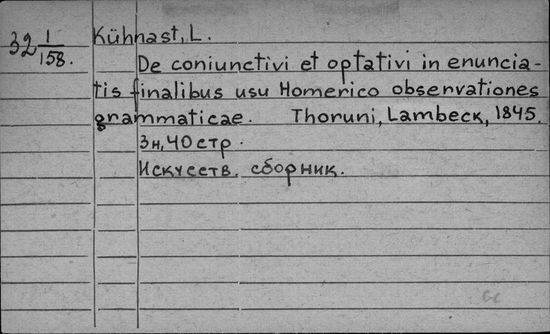 32 1/158.
Kühnast, L.
De coniunctivi et optativi in enuncia-
tis finalibus usu Homerico observationes
grammaticae. Thoruni, Lambeck, 1845.
3н, 40 стр.
Искусств. сборник.